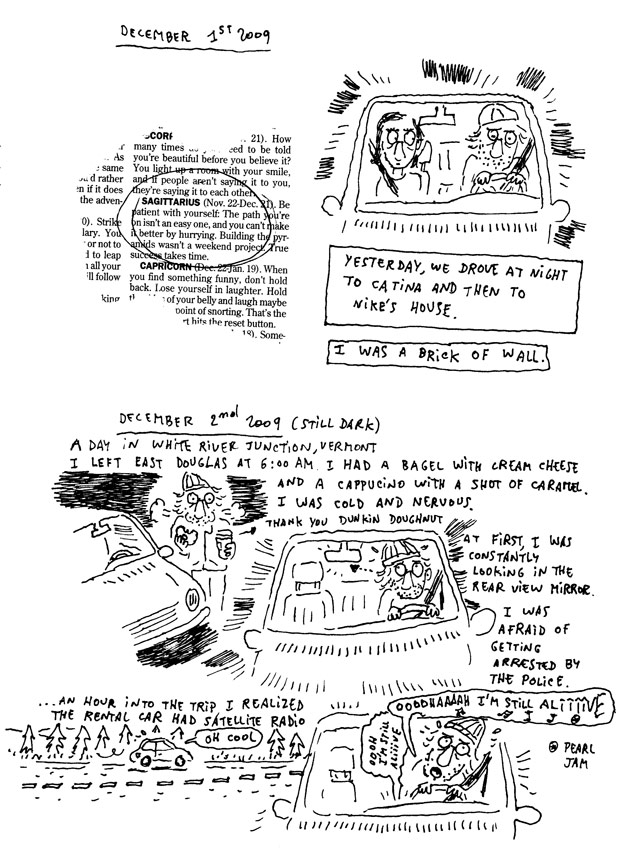 DECEMBER 1ST 2009
SCORP
21). How
many times do you need to be told
As you're beautiful before you believe it?
same You light up a room with your smile,
rather and if people aren't saying it to you,
n if it does they're saying it to each other.
the adven- SAGITTARIUS (Nov. 22-Dec. 21). Be
patient with yourself: The path you're
0). Strike on isn't an easy one, and you can't make
lary. You it better by hurrying. Building the pyr-
or not to amids wasn't a weekend project. True
d to leap success takes time.
n all your CAPRICORN (Dec. 22-Jan. 19). When
'll follow you find something funny, don't hold
back. Lose yourself in laughter. Hold
king of your belly and laugh maybe
point of snorting. That's the
rt hits the reset button.
18). Some-
YESTERDAY, WE DROVE AT NIGHT
TO CATINA AND THEN TO
NIKE'S HOUSE.
I WAS A BRICK OF WALL.
DECEMBER 2nd 2009 (STILL DARK)
A DAY IN WHITE RIVER JUNCTION, VERMONT
I LEFT EAST DOUGLAS AT 6:00 AM. I HAD A BAGEL WITH CREAM CHEESE
AND A CAPPUCINO WITH A SHOT OF CARAMEL.
I WAS COLD AND NERVOUS.
THANK YOU DUNKIN DOUGHNUT
AT FIRST, I WAS
CONSTANTLY
LOOKING IN THE
REAR VIEW MIRROR.
I WAS
AFRAID OF
GETTING
ARRESTED BY
THE POLICE.
...AN HOUR INTO THE TRIP I REALIZED
THE RENTAL CAR HAD SATELLITE RADIO
OH COOL
OOODHAAAAH I'M STILL ALIIIIIVE
OOOH
I'M STILL
ALIIIVE
@ PEARL
JAM